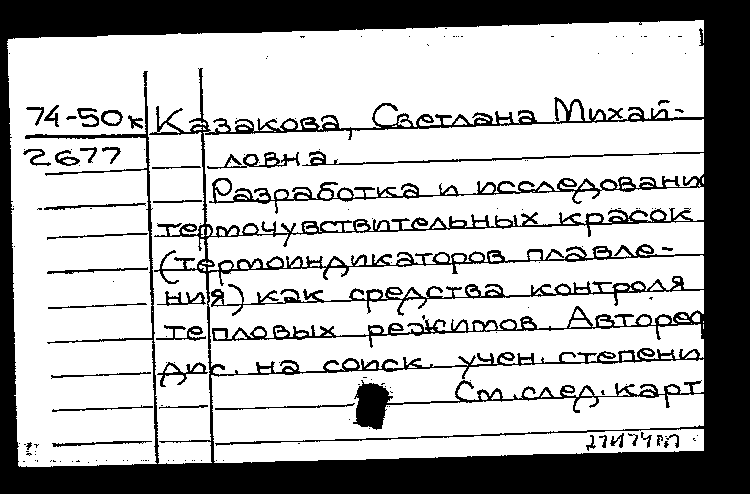 74-50к Казакова, Светлана Михай-
2677 ловна.
Разработка и исследовани
термочувствительных красок
(термоиндикаторов плавле-
ния) как средства контроля
тепловых режимов. Авторе
дис. на соиск. учен. степени
См. след. карт